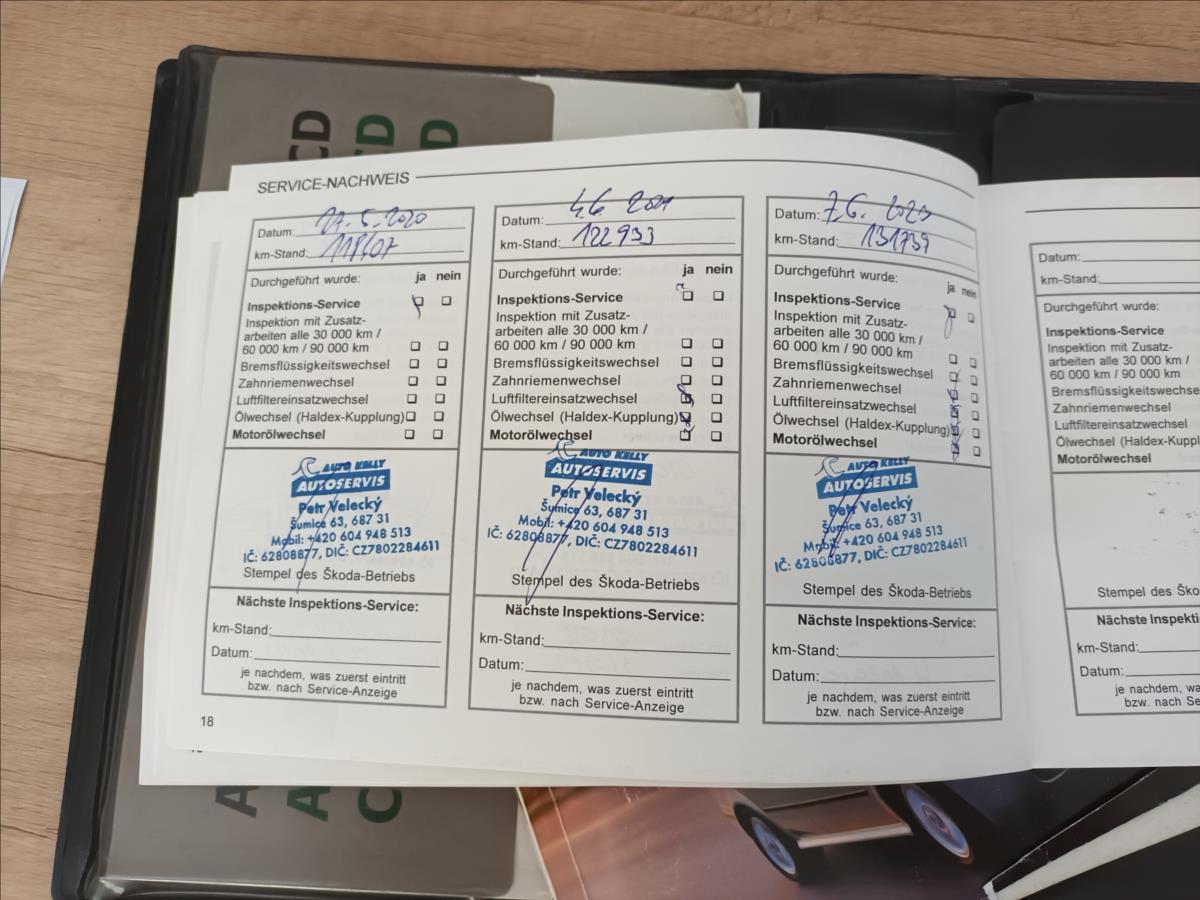 CD
CD
CD
SERVICE-NACHWEIS
Datum: 5. 2020
km-Stand:
Durchgeführt wurde: ja nein
Inspektions-Service
Inspektion mit Zusatz-
arbeiten alle 30 000 km /
60 000 km / 90 000 km
Bremsflüssigkeitswechsel
Zahnriemenwechsel
Luftfiltereinsatzwechsel
Ölwechsel (Haldex-Kupplung)
Motorölwechsel
AUTO KELLY
AUTOSERVIS
Petr Velecký
Šumice 63, 687 31
Mobil: +420 604 948 513
IČ: 62808877, DIČ: CZ7802284611
Stempel des Škoda-Betriebs
Nächste Inspektions-Service:
km-Stand:
Datum:
je nachdem, was zuerst eintritt
bzw. nach Service-Anzeige
18
Datum: 4.6. 2021
km-Stand: 122933
Durchgeführt wurde: ja nein
Inspektions-Service
Inspektion mit Zusatz-
arbeiten alle 30 000 km /
60 000 km / 90 000 km
Bremsflüssigkeitswechsel
Zahnriemenwechsel
Luftfiltereinsatzwechsel
Ölwechsel (Haldex-Kupplung)
Motorölwechsel
AUTO KELLY
AUTOSERVIS
Petr Velecký
Šumice 63, 687 31
Mobil: +420 604 948 513
IČ: 62808877, DIČ: CZ7802284611
Stempel des Škoda-Betriebs
Nächste Inspektions-Service:
km-Stand:
Datum:
je nachdem, was zuerst eintritt
bzw. nach Service-Anzeige
Datum: 7.6. 2023
km-Stand: 131739
Durchgeführt wurde: ja nein
Inspektions-Service
Inspektion mit Zusatz-
arbeiten alle 30 000 km /
60 000 km / 90 000 km
Bremsflüssigkeitswechsel
Zahnriemenwechsel
Luftfiltereinsatzwechsel
Ölwechsel (Haldex-Kupplung)
Motorölwechsel
AUTO KELLY
AUTOSERVIS
Petr Velecký
Šumice 63, 687 31
Mobil: +420 604 948 513
IČ: 62808877, DIČ: CZ7802284611
Stempel des Škoda-Betriebs
Nächste Inspektions-Service:
km-Stand:
Datum:
je nachdem, was zuerst eintritt
bzw. nach Service-Anzeige
Datum:
km-Stand:
Durchgeführt wurde:
Inspektions-Service
Inspektion mit Zusatz-
arbeiten alle 30 000 km
60 000 km / 90 000 km
Bremsflüssigkeitswechse
Zahnriemenwechsel
Luftfiltereinsatzwechsel
Ölwechsel (Haldex-Kupp
Motorölwechsel
Stempel des Šk
Nächste Inspekti
km-Stand:
Datum:
je nachdem, was
bzw. nach Se
A
A
C